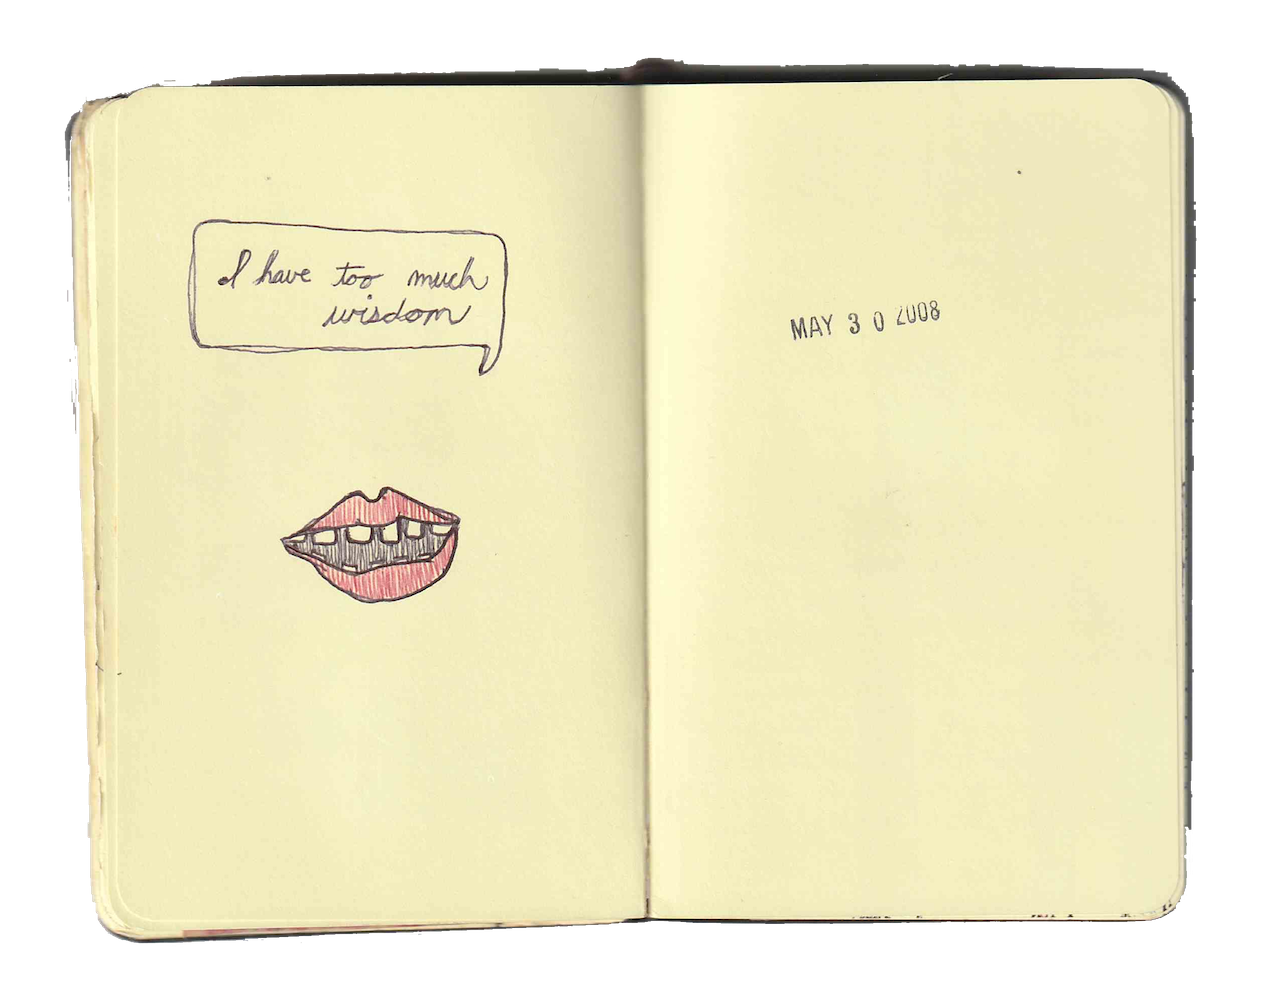 I have too much
wisdom
MAY 30 2008